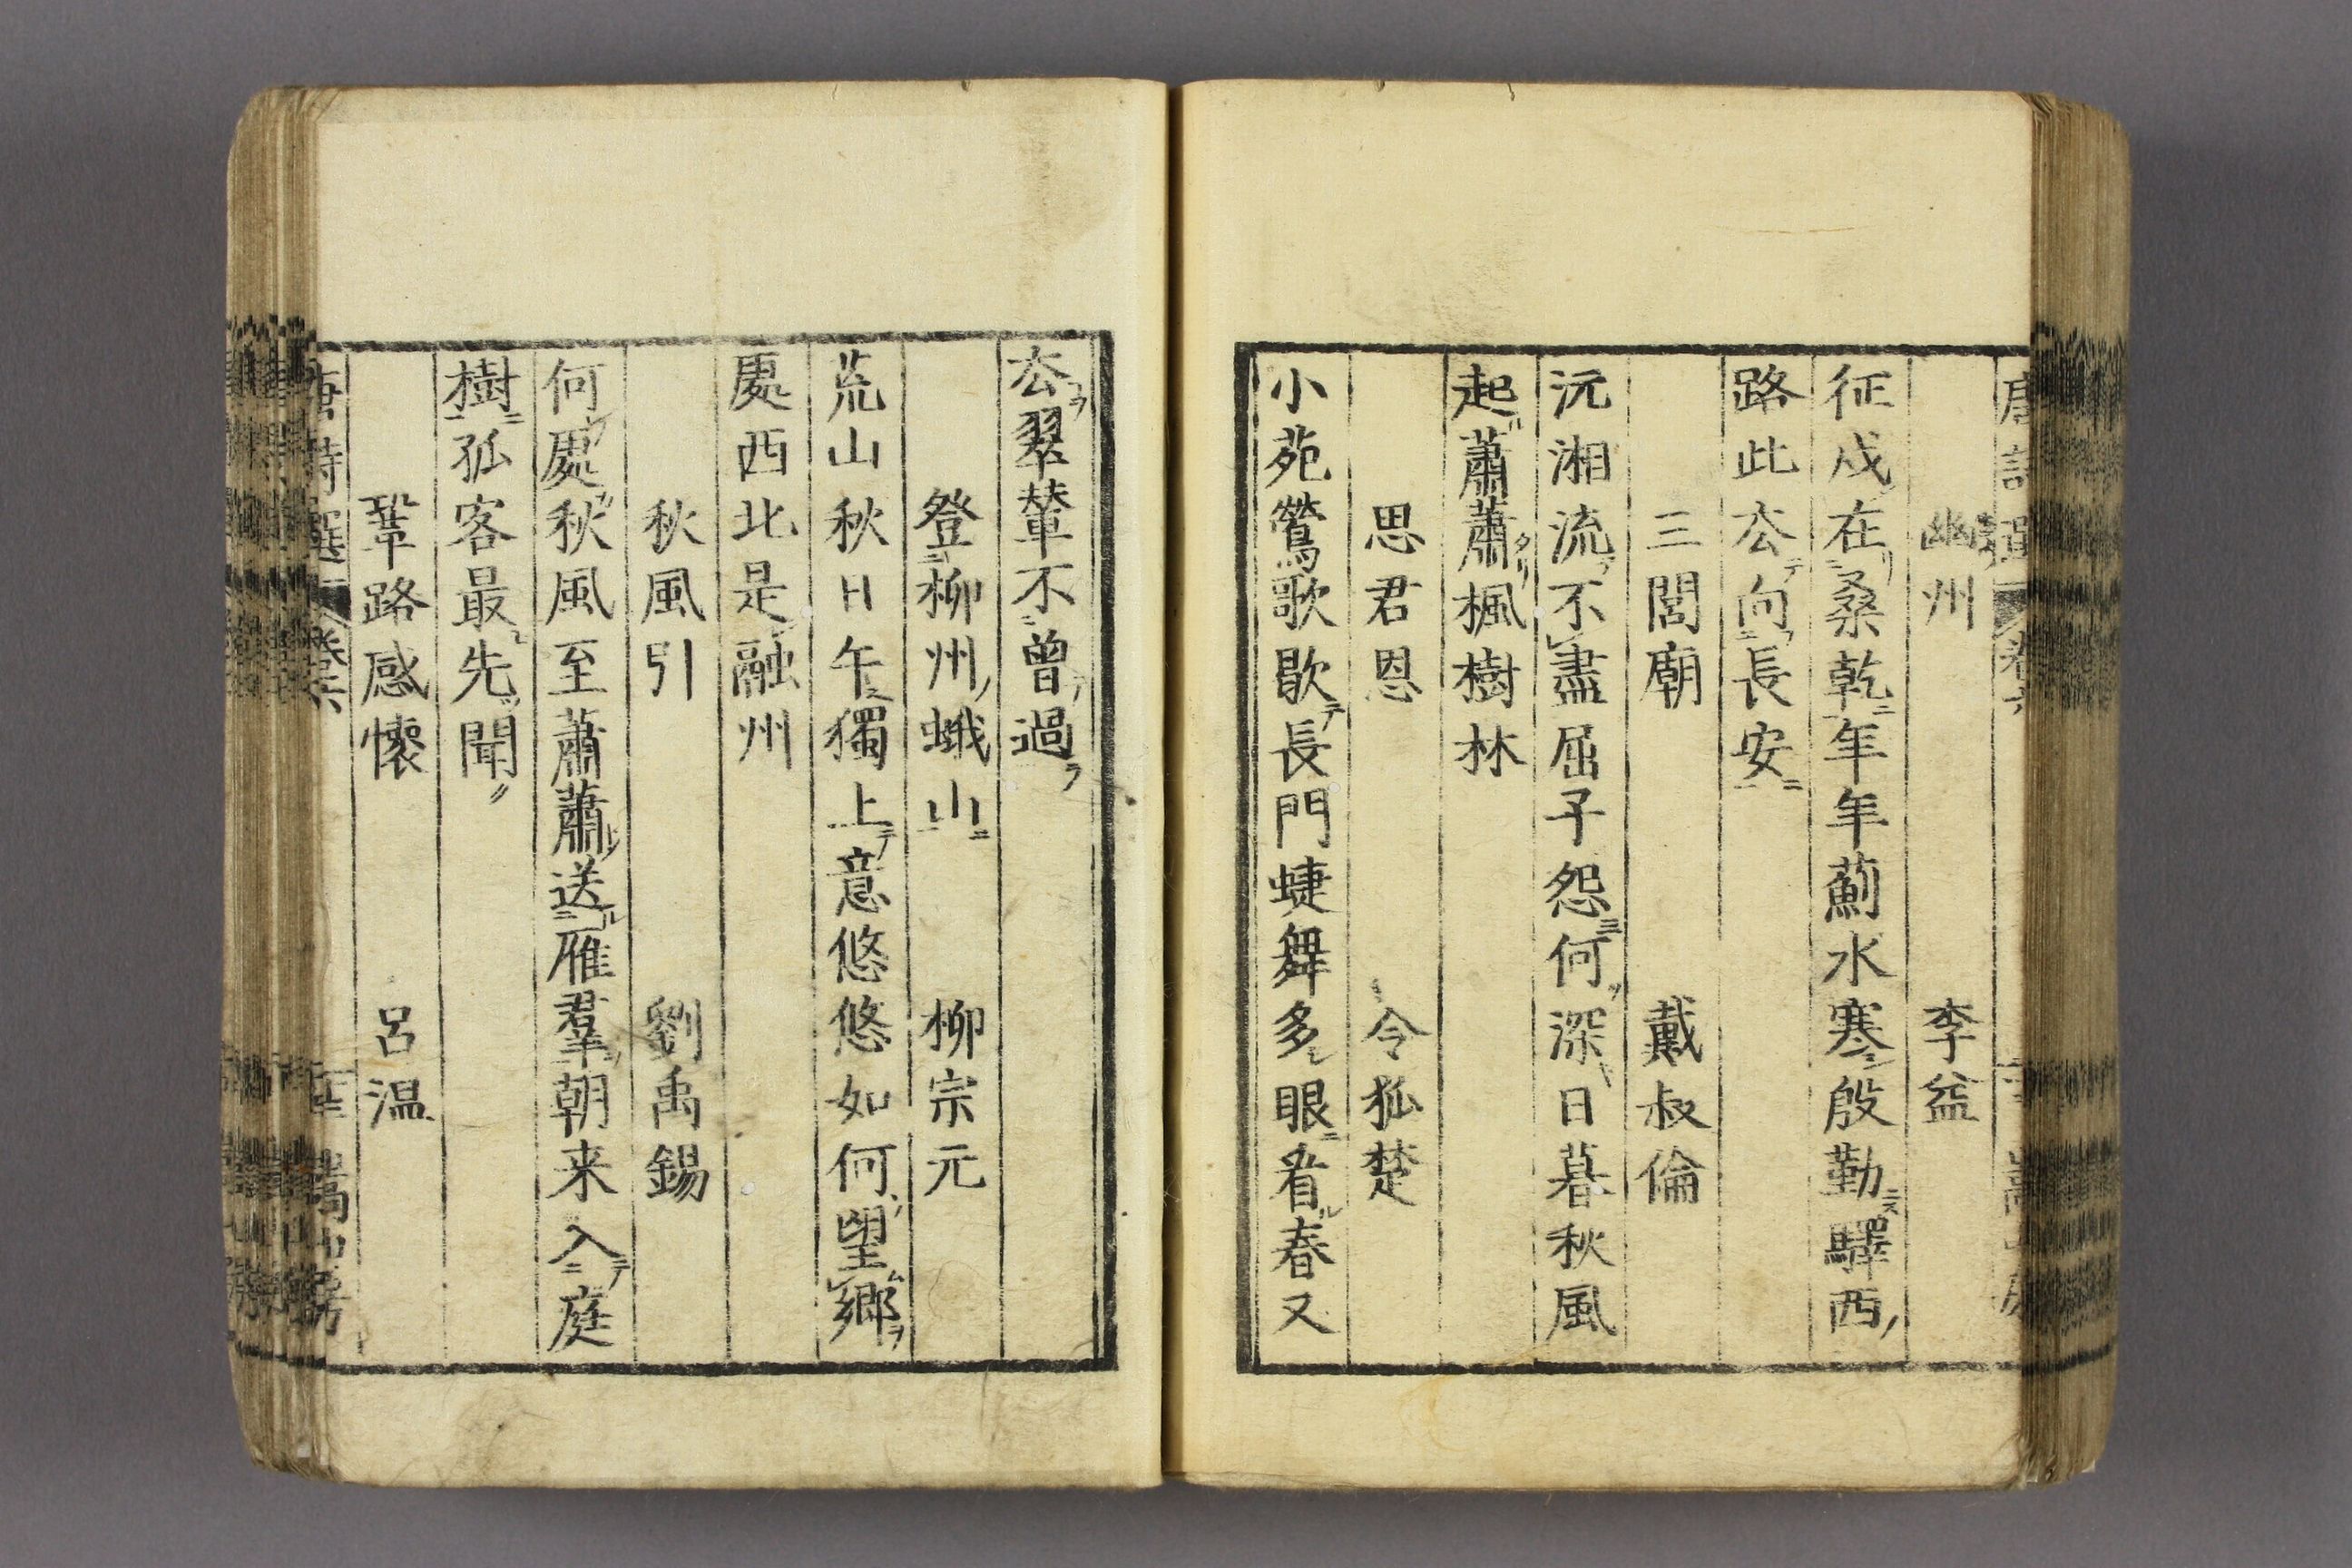 唐詩選 卷六
幽州 李益
征戍在桑乾年年薊水寒殷勤驛西
路此厺向長安
三閭廟 戴叔倫
沅湘流不盡屈子怨何深日暮秋風
起蕭蕭楓樹林
思君恩 令狐楚
小苑鶯歌歇長門蜨舞多眼看春又
厺翠輦不曾過
登柳州蛾山 柳宗元
荒山秋日午獨上意悠悠如何望鄉
處西北是融州
秋風引 劉禹錫
何處秋風至蕭蕭送雁羣朝来入庭
樹孤客最先聞
鞏路感懷 呂温
唐詩選 卷六 嵩山房